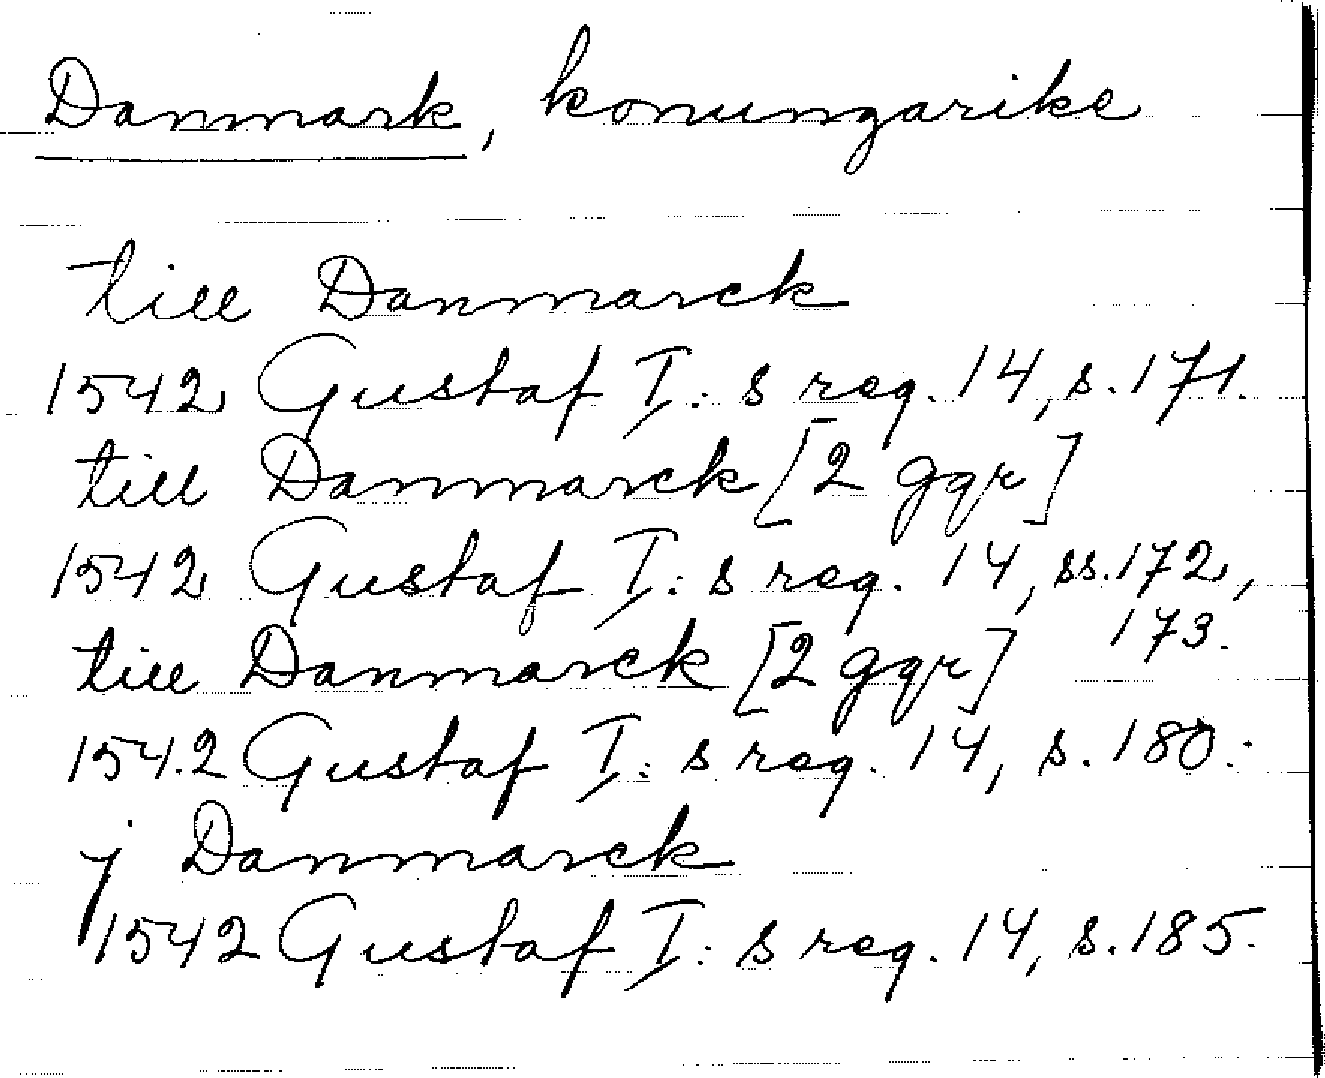 Danmark, konungarike
till Danmarck
1542 Gustaf I:s reg. 14, s. 171.
till Danmarck [2 ggr]
1542 Gustaf I:s reg. 14, ss. 172,
173.
till Danmarck [2 ggr]
1542 Gustaf I:s reg. 14, s. 180.
j Danmarck
1542 Gustaf I:s reg. 14, s. 185.